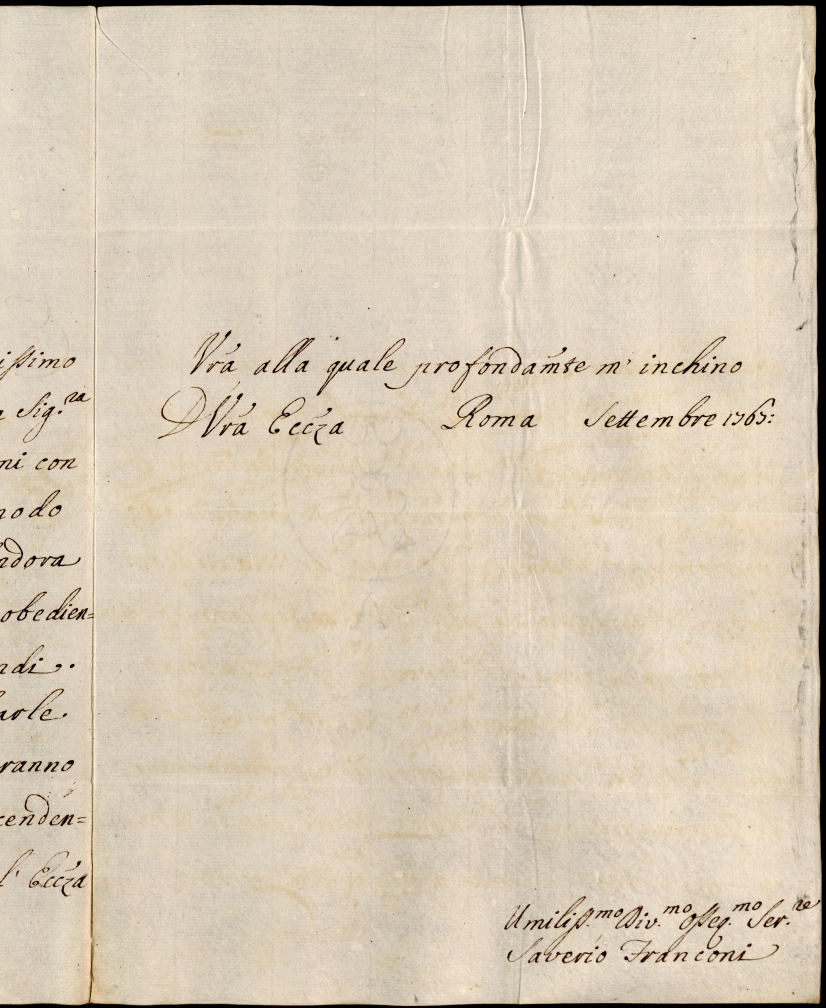 issimo
a Sig.ra
ni con
nodo
ndora
obedien=
ndi.
arle.
ranno
cenden=
l' Eccza
Vra alla quale profondamte m' inchino
D Vra Eccza Roma Settembre 1765:
Umiliss.mo Div.mo osseq.mo Ser.re
Saverio Franconi